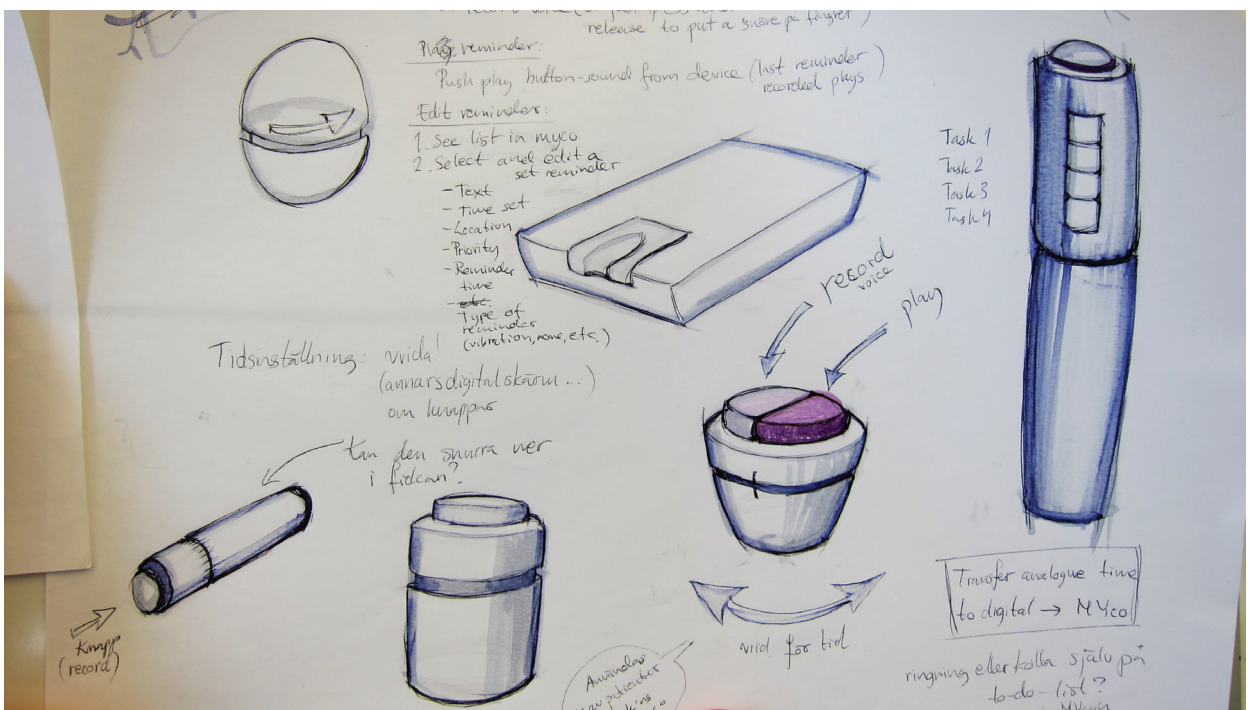 release to put a snöre på fingret)
Play reminder:
Push play button - sound from device (last reminder
recorded plays)
Edit reminders:
1. See list in myco
2. Select and edit a
set reminder
- Text
- Time set
- Location
- Priority
- Reminder
time
- etc.
Type of
reminder
(vibration, none, etc.)
Task 1
Task 2
Task 3
Task 4
record
voice
play
Tidsinställning: vrida!
(annars digital skärm ...)
om knappar
kan den snurra ner
i fickan?
Knapp
(record)
vrid för tid
Transfer analogue time
to digital → MYco
ringning eller kolla själv på
to-do-list?
Användas